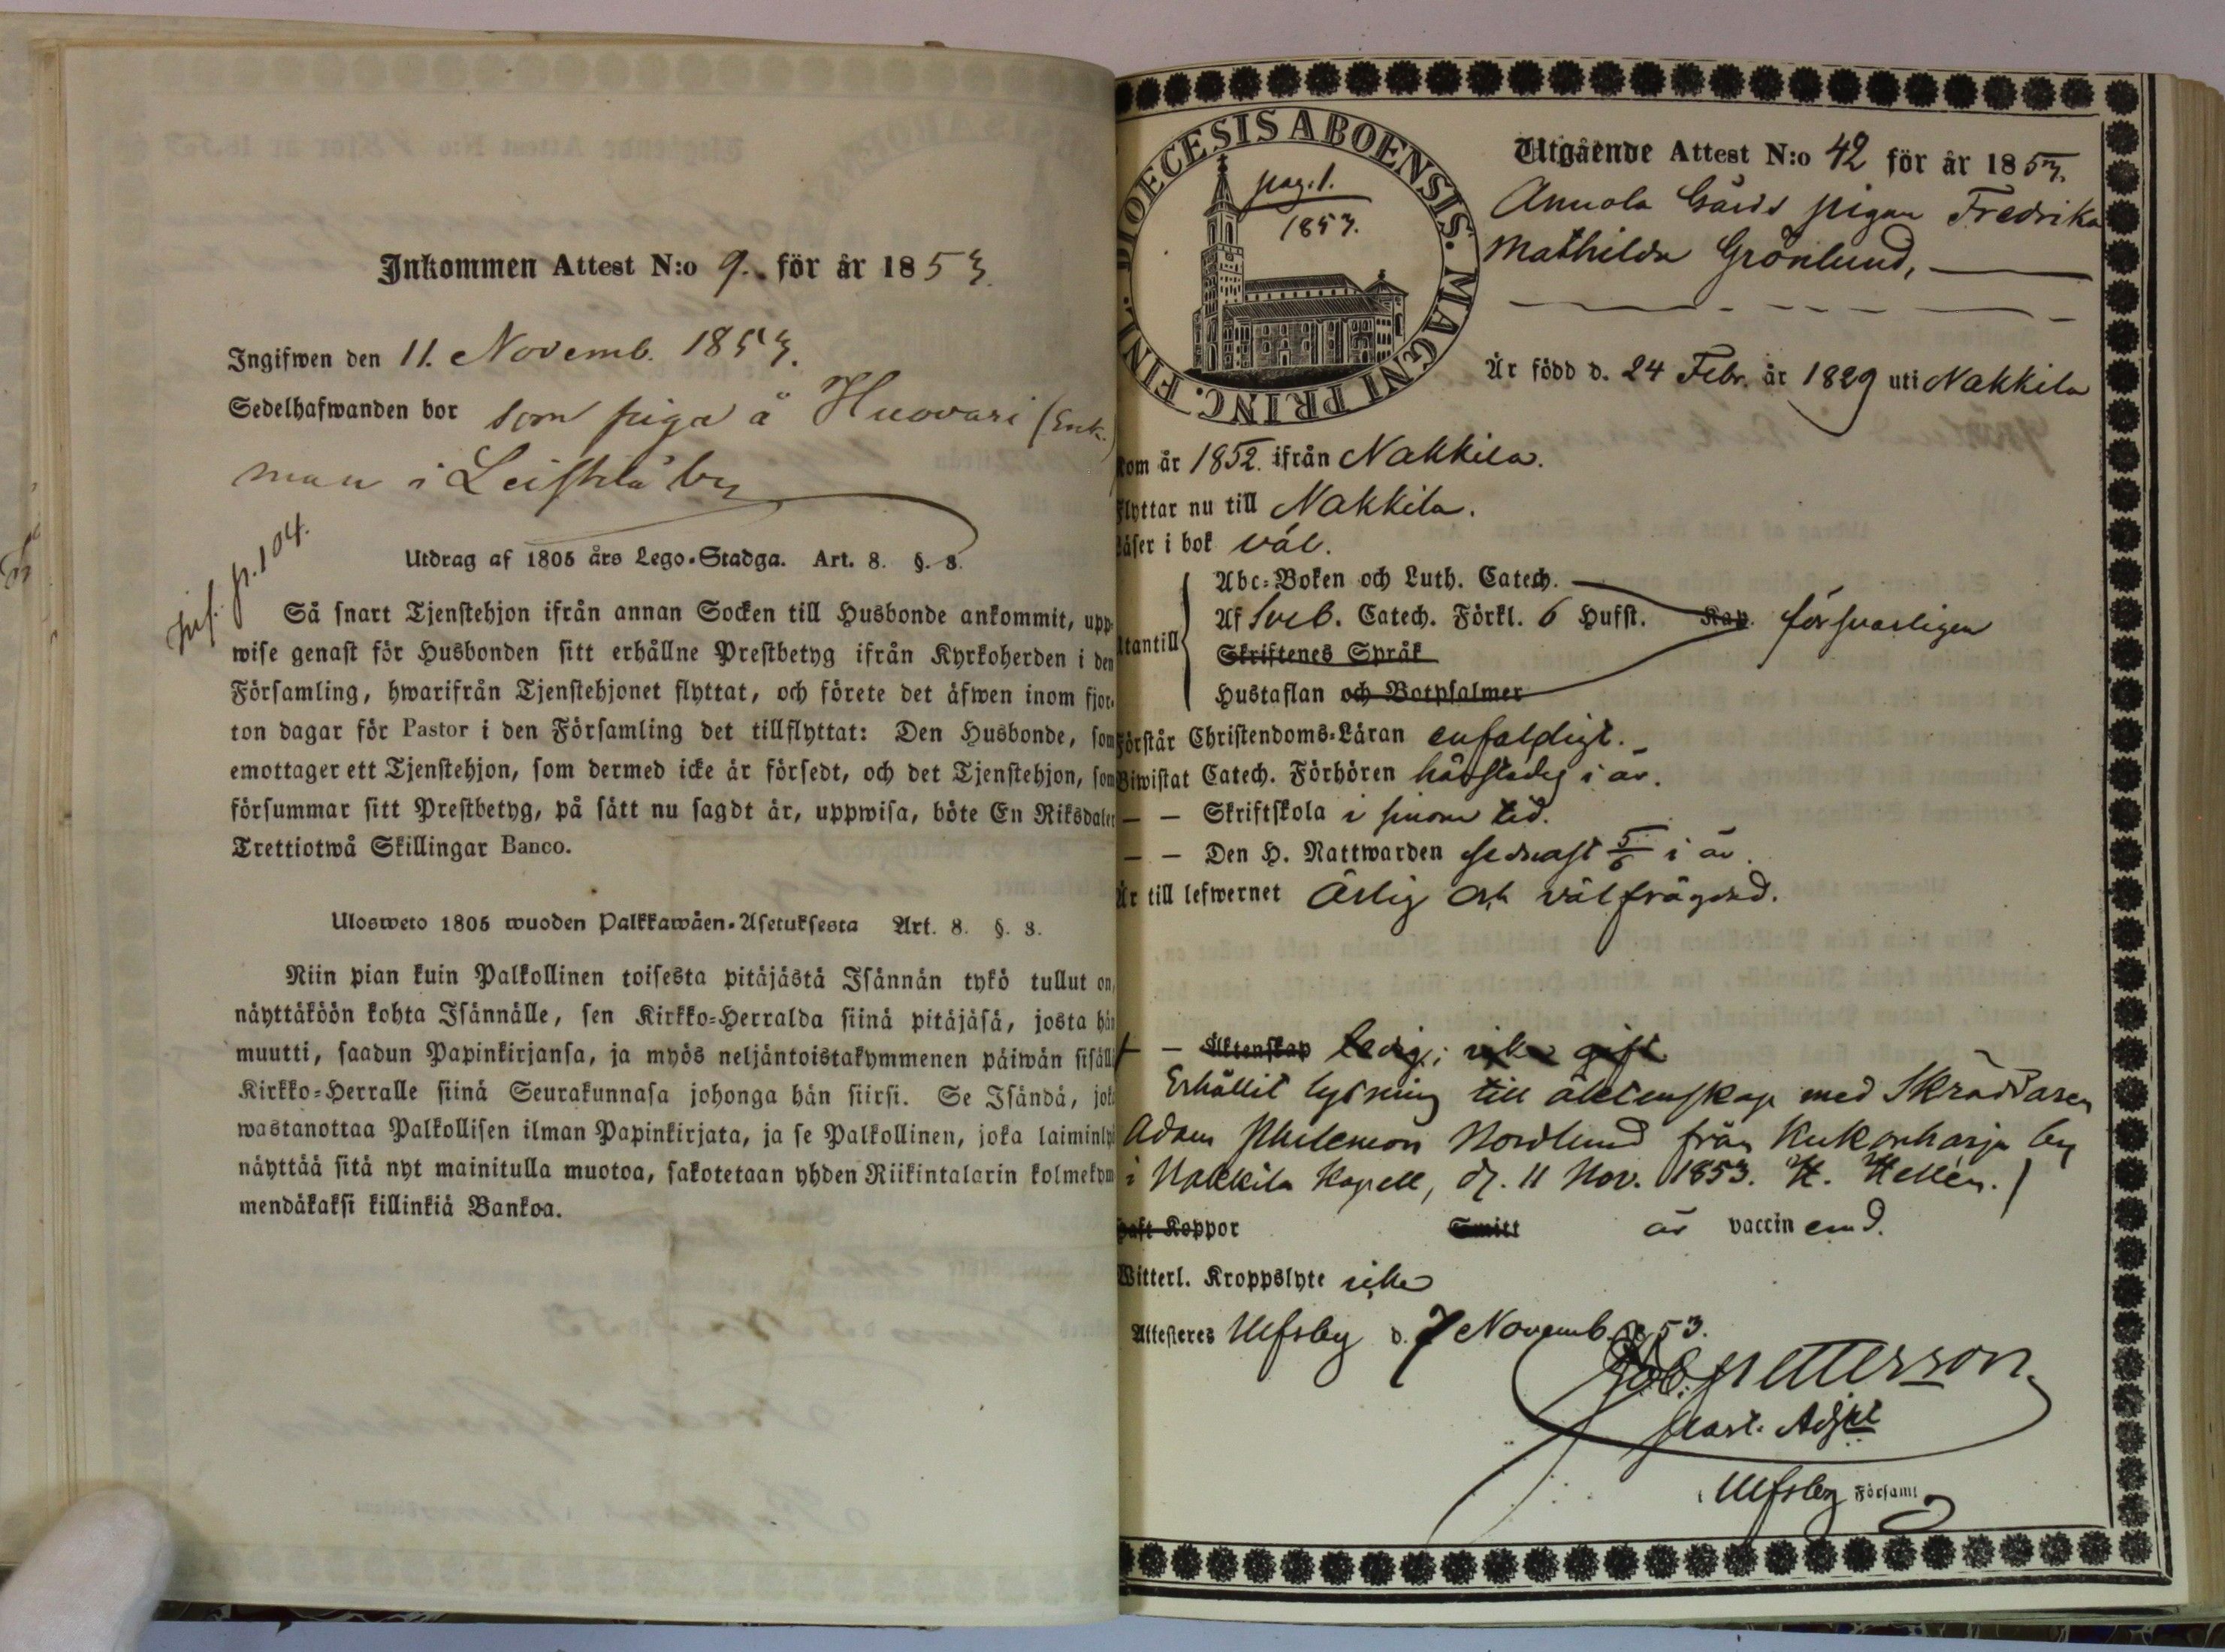 Inkommen Attest N:o 9. för år 1853.
Ingifwen den 11. Novemb. 1853.
Sedelhafwanden bor som piga å Huovari (Enk.
man i Leistilä by
p. 104.
Utdrag af 1805 års Lego-Stadga. Art. 8. §. 3.
Så snart Tjenstehjon ifrån annan Socken till Husbonde ankommit, upp-
wise genast för Husbonden sitt erhållne Prestbetyg ifrån Kyrkoherden i den
Församling, hwarifrån Tjenstehjonet flyttat, och förete det äfwen inom fjor-
ton dagar för Pastor i den Församling det tillflyttat: Den Husbonde, som
emottager ett Tjenstehjon, som dermed icke är försedt, och det Tjenstehjon, som
försummar sitt Prestbetyg, på sätt nu sagdt är, uppwisa, böte En Riksdaler
Trettiotwå Skillingar Banco.
Ulosweto 1805 wuoden Palkkawäen-Asetuksesta Art. 8. §. 3.
Niin pian kuin Palkollinen toisesta pitäjästä Isännän tykö tullut on,
näyttäköön kohta Isännälle, sen Kirkko-Herralda siinä pitäjäsä, josta hän
muutti, saadun Papinkirjansa, ja myös neljäntoistakymmenen päiwän sisäll
Kirkko-Herralle siinä Seurakunnasa johonga hän siirsi. Se Isändä, jok
wastanottaa Palkollisen ilman Papinkirjata, ja se Palkollinen, joka laiminly
näyttää sitä nyt mainitulla muotoa, sakotetaan yhden Riikintalarin kolmekym
mendäkaksi killinkiä Bankoa.
DIOECESIS ABOENSIS. MAGNI PRINC. FINL.
pag. 1.
1853.
Utgående Attest N:o 42 för år 1853.
Annola Gårds pigan Fredrika
Mathilda Grönlund,
Är född d. 24 Febr. år 1829 uti Nakkila
kom år 1852. ifrån Nakkila.
Flyttar nu till Nakkila.
Läser i bok väl.
Utantill
Abc-Boken och Luth. Catech.
Af Sveb. Catech. Förkl. 6 Hufst. Kap. försvarligen
Skriftenes Språk
Hustaflan och Botpsalmer
Förstår Christendoms-Läran enfaldigt.
Biwistat Catech. Förhören härstädes i år.
— — Skriftskola i sinom tid.
— — Den H. Nattwarden sednast 5/6 i år.
Är till lefwernet Ärlig och välfrägdad.
— — Äktenskap ledig; icke gift
Erhållit lysning till äktenskap med Skräddaren
Adam Philemon Nordlund från Kukonharja by
i Nakkila Kapell, d. 11 Nov. 1853. H. Hellén.
haft Koppor Smitt är vaccinerad.
Witterl. Kroppslyte icke
Attesteres Ulfsby d. 7 Novemb. 1853.
Petterson
Past. Adjkt
i Ulfsby Församl